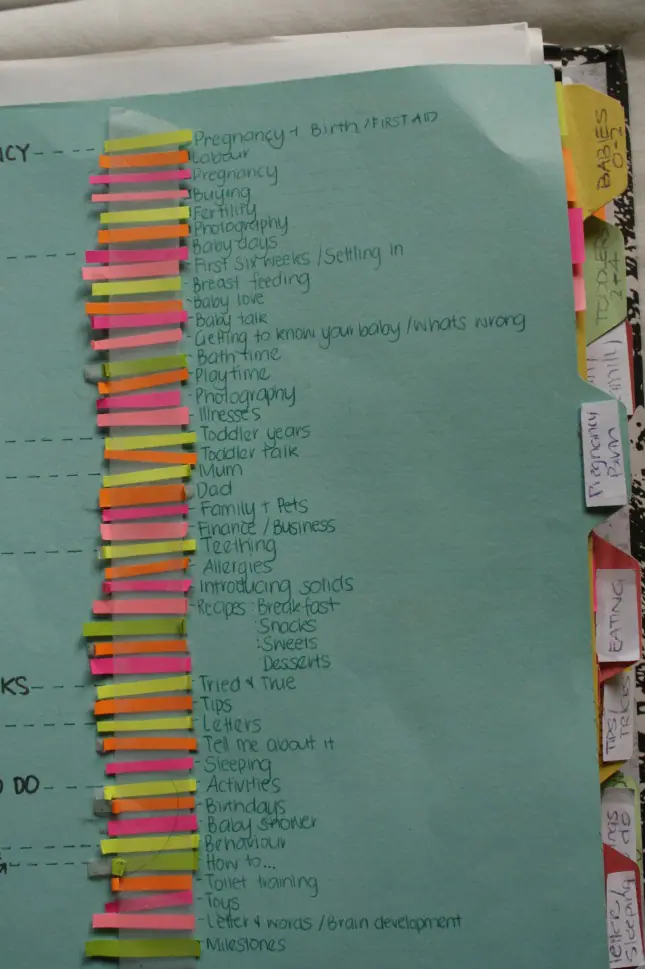 Pregnancy + Birth / FIRST AID
Labour
Pregnancy
Buying
Fertility
Photography
Baby days
First six weeks / Settling in
Breast feeding
Baby love
Baby talk
Getting to know your baby / whats wrong
Bath time
Playtime
Photography
Illnesses
Toddler years
Toddler talk
Mum
Dad
Family + Pets
Finance / Business
Teething
Allergies
Introducing solids
Recipes : Breakfast
: Snacks
: Sweets
Desserts
Tried & True
Tips
Letters
Tell me about it
Sleeping
Activities
Birthdays
Baby shower
Behaviour
How to...
Toilet training
Toys
Letter & words / Brain development
Milestones
NCY
KS
DO
BABIES
0-2
TODDLER
2-4
Pregnancy
Birth
EATING
TIPS/
Sleeping